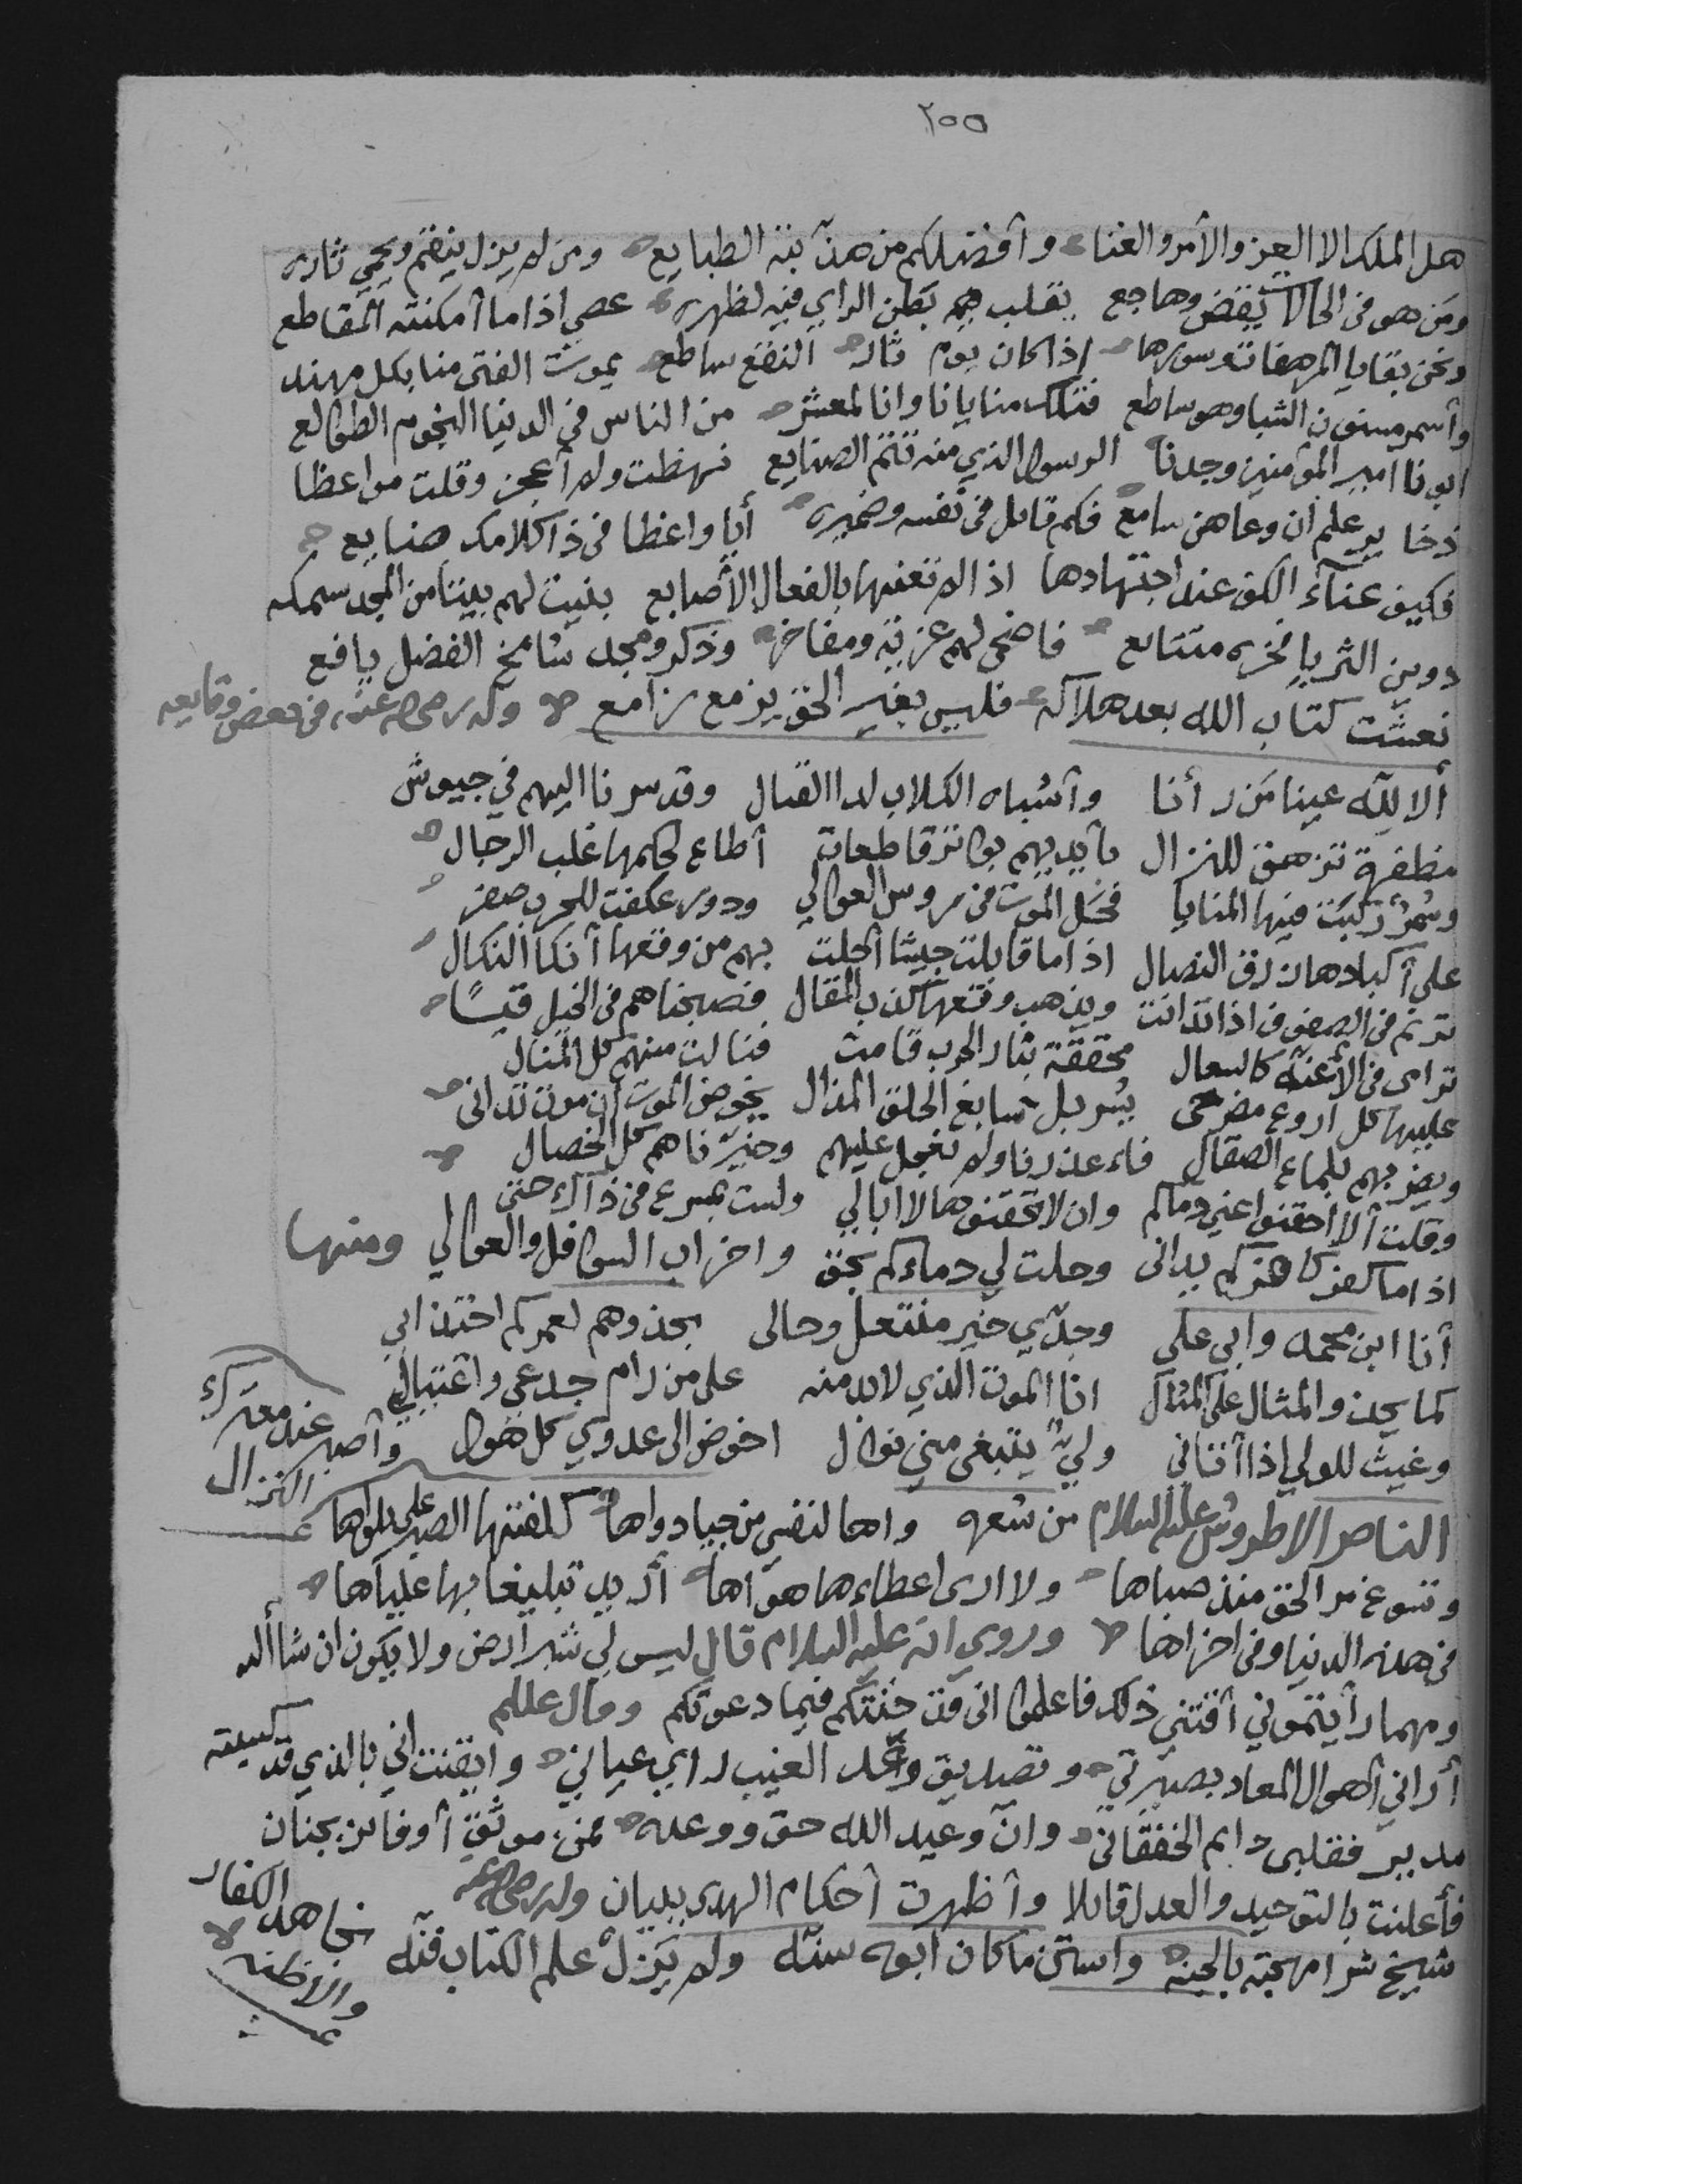 ٢٥٥
هل الملك الا العز والأمر والغناء وأفضلكم من هذبته الطبايع ومن لم يزل ينقم ويحمي ثاره
ومن هو في الحالات يقض وهاجع يقلب بطن الراي فيه لظهره عصي اذا ما أمكنته المقاطع
ونحن بقايا المرهفات وسورها إذا كان يوم ثار النقع ساطع يموت الفتى منا بكل مهند
وأسمر مسنون الشبا وهو ساطع فتلك منايانا وانا لمعشر من الناس في الدنيا النجوم الطوالع
ابونا امير المؤمنين وجدنا الرسول الذي منه تتم الصنايع نهظت ولم أعجز وقلت مواعظا
ذخاير علم ان وعاهن سامع فكم قائل في نفسه وضميره أيا واعظا في ذا كلامك ضايع
فكيف عناء الكف عند اجتهادها اذا لم تعنها بالفعال الأصابع بنيت لهم بيتا من المجد سمكه
دوين الثريا فخره متتابع فاضحى لهم عز به ومفاخر وذكر ومجد شامخ الفضل يافع
نعشت كتاب الله بعد هلاكه فليس بغير الحق يزمع زامع وله رضي الله عنه في بعض وقايعه
ألا لله عينا من رأنا وأشباه الكلاب لدا القتال وقد سرنا اليهم في جيوش
مظفرة تزهف للنزال بأيديهم بواتر قاطعات أطاع لحكمها غلب الرجال
وسمر ركبت فيها المنايا فحل الموت في روس العوالي ودور عكفت للحرب صفر
على أكبادها زرق النصال اذا ما قابلت جيشا أحلت بهم من وقعها أنكا النكال
ترنم في الصفوف اذا تدانت ويذهب وقعها كذب المقال فصبحناهم في الخيل قبسًا
ترامى في الأعنة كالسعال محققة بثار الحرب قامت فنالت منهم كل المنال
عليها كل اروع مضرحى يسربل سابغ الحلق المذال يخوض الموت ان موت تدانى
ويضربهم بلماع الصقال فاعذرنا ولم نعجل عليهم وخيرناهم كل الخصال
وقلت ألا احقنوا عني دماكم وان لا تحقنوها لا ابالي ولست بمسرع في ذاك حتى
اذا ما كفر كافركم بدالى وحلت لي دماءكم بحق واخراب السوافل والعوالي ومنها
أنا ابن محمد وابي علي وجدي خير منتعل وحالى بحذوهم لعمركم احتذائي
كما يحذو المثال على المثال انا الموت الذي لابد منه على من رام جدعي واغتيالي
وغيث للولي اذا أتاني ولي يتبغى مني نوال اخوض الى عدوي كل هول وأصبر عند معترك النزال
الناصر الاطروش عليه السلام من شعره واها لنفسي من جيادواها كلفتها الصبر على بلواها
وتسوغ مر الحق منذ صباها ولا ارى اعطاءها هواها أريد تبليغا بها علياها
في هذه الدنيا وفي اخراها وروي انه عليه السلام قال ليس لي شبر ارض ولا يكون ان شاالله
ومهما رأيتموني أفتني ذلك فاعلموا انى قد خنتكم فيما دعوتكم وقال عللم
أراني أهوال المعاد بصيرتي وتصديق وعد الغيب راي عياني وايقنت اني بالذي قد كسبته
مدبر فقلبى دايم الخفقاني وان وعيد الله حق ووعده فمن موثق أو فائز بجنان
فأعلنت بالتوحيد والعدل قائلا وأظهرت أحكام الهدى ببيان وله رضي الله عنه
شيخ شرا مهجته بالجنه واستن ما كان ابوه سنه ولم يزل علم الكتاب فنه يجاهد الكفار والاظنه